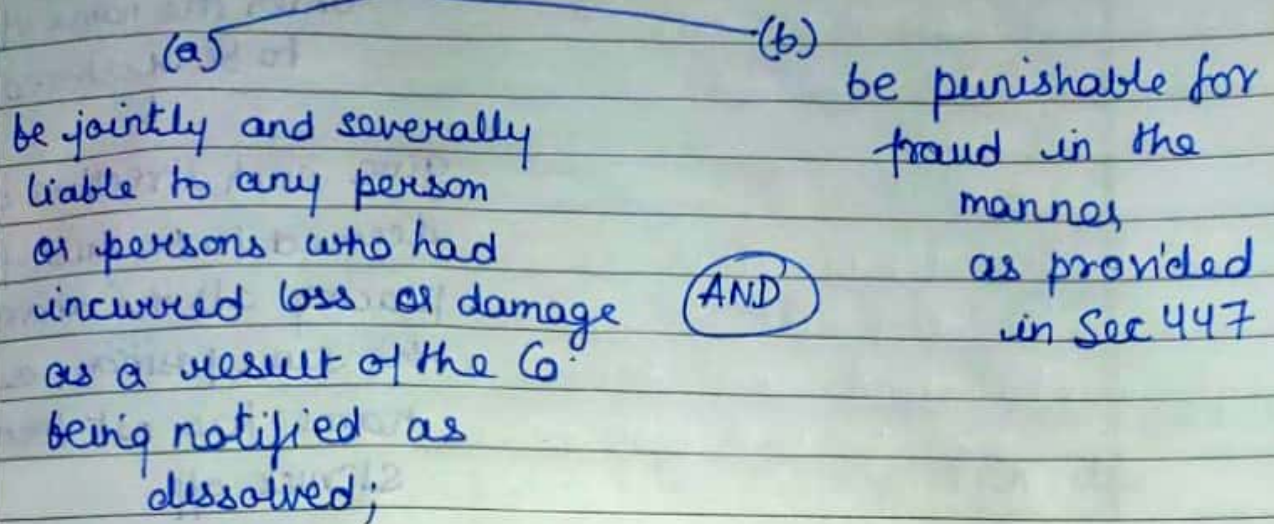 (a)
be jointly and severally
liable to any person
or persons who had
incurred loss or damage
as a result of the Co.
being notified as
dissolved;
AND
(b)
be punishable for
fraud in the
manner
as provided
in Sec 447